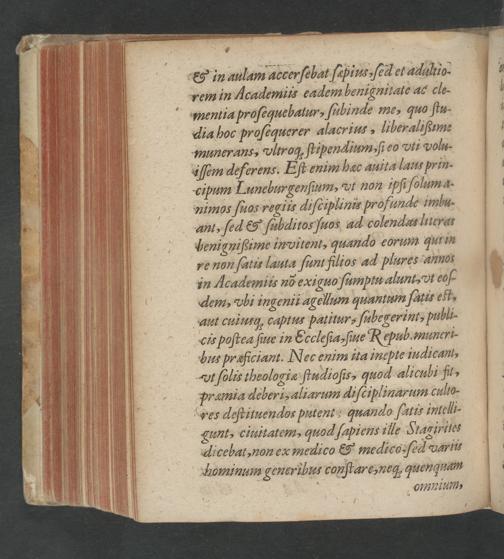 & in aulam accersebat sæpius, sed et adultio-
rem in Academiis eadem benignitate ac cle-
mentia prosequebatur, subinde me, quo stu-
dia hoc prosequerer alacrius, liberalißime
munerans, vltroq; stipendium, si eo vti volu-
issem deferens. Est enim hæc auita laus prin-
cipum Luneburgensium, vt non ipsi solum a-
nimos suos regiis disciplinis profunde imbu-
ant, sed & subditos suos ad colendas literas
benignißime inuitent, quando eorum qui in
re non satis lauta sunt filios ad plures annos
in Academiis nō exiguo sumptu alunt, vt eos-
dem, vbi ingenii agellum quantum satis est,
aut cuiusq; captus patitur, subegerint, publi-
cis postea siue in Ecclesia, siue Repub. muneri-
bus præficiant. Nec enim ita inepte iudicant,
vt solis theologiæ studiosis, quod alicubi fit,
præmia deberi, aliarum disciplinarum culto-
res destituendos putent: quando satis intelli-
gunt, ciuitatem, quod sapiens ille Stagirites
dicebat, non ex medico & medico, sed variis
hominum generibus constare, neq; quenquam
omnium,